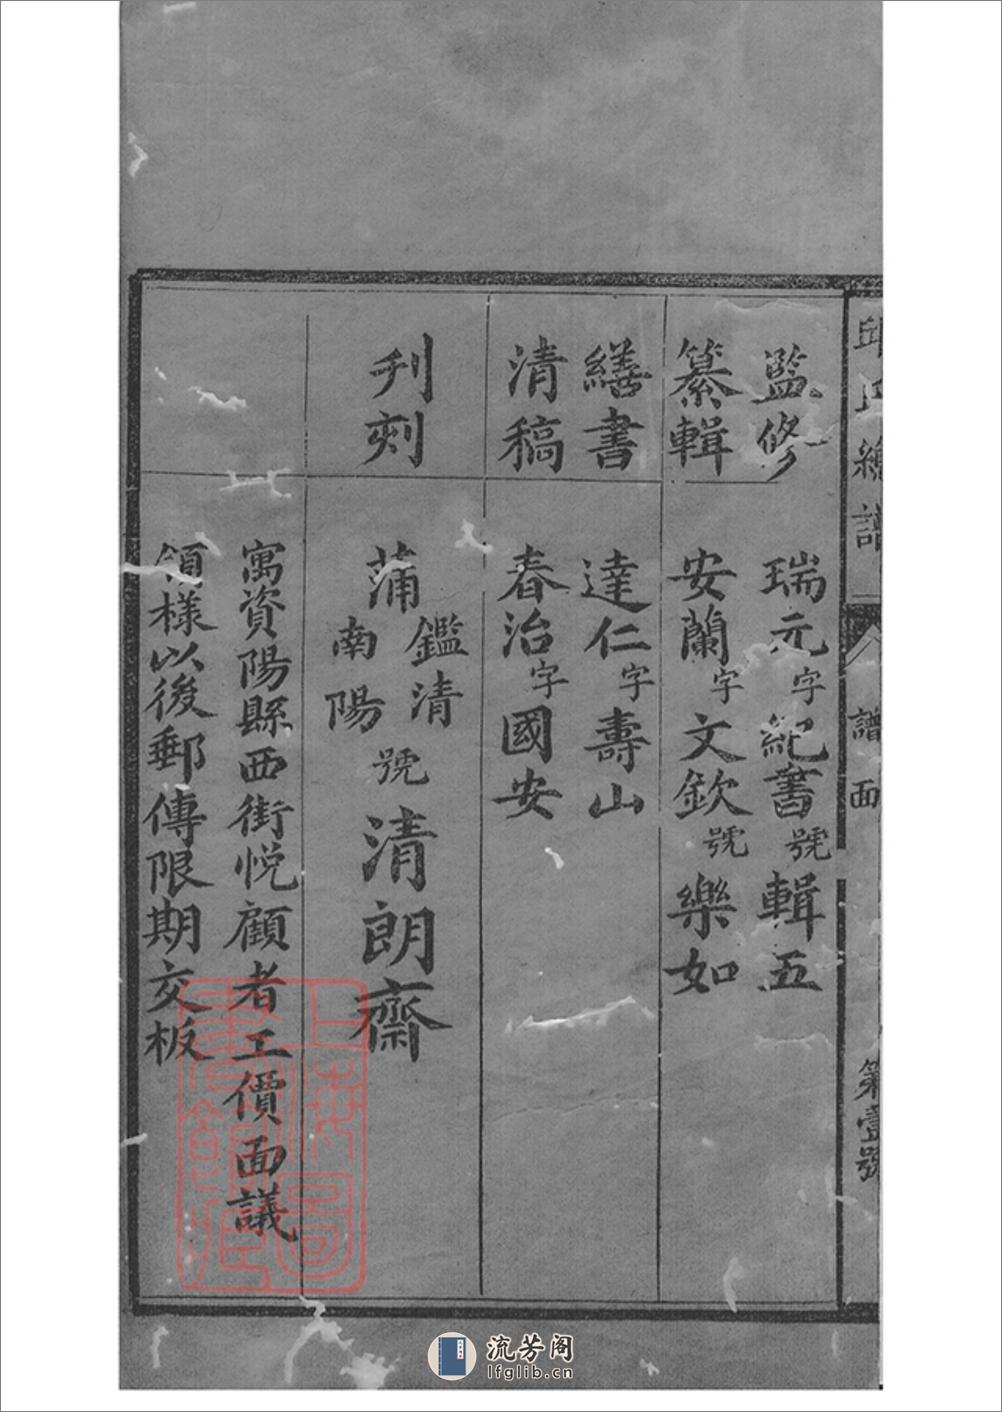 邱氏總譜 譜面 第壹號
監修 瑞元字紀書號輯五
纂輯 安蘭字文欽號樂如
繕書 達仁字壽山
清稿 春治字國安
刊刻 蒲鑑清南陽號清朗齋
寓資陽縣西街悅顧者工價面議
領樣以後郵傳限期交板
上海圖書館藏
流芳阁
lfglib.cn